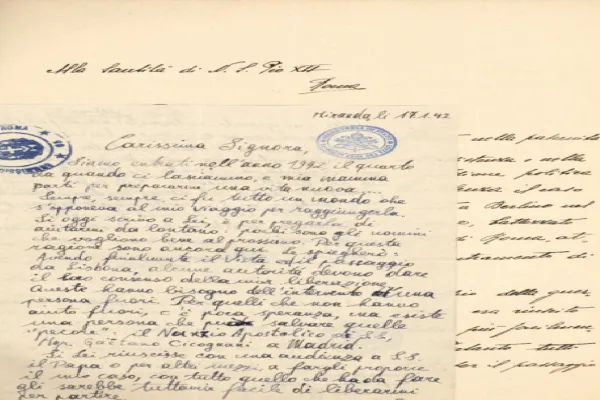 Alla Santità di N. S. Pio XII
Roma
Miranda li 17.1.42
Carissima Signora,
Siamo entrati nell'anno 1942 il quarto
da quando ci lasciammo, e mia mamma
partì per prepararmi una vita nuova...
Sempre, sempre, ci fu tutto un mondo che
s'opponeva al mio viaggio per raggiungerla.
Se oggi scrivo a Lei, è per pregarla di
aiutarmi da lontano: pochi sono gli uomini
che vogliono bene al prossimo. Per questa
ragione sono ancora qui. Le spiegherò:
Avendo finalmente il Visto ed il passaggio
da Lisbona, alcune autorità devono dare
il loro consenso della mia liberazione.
Queste hanno bisogno dell'intervento d'una
persona fuori. Per quelli che non hanno
aiuto fuori, c'è poca speranza, ma esiste
una persona che può salvare quelle
il Nunzio Apostolico di S.S.
Mgr. Gaetano Cicognani a Madrid.
Se Lei riuscisse con una audienza a S.S.
il Papa o per altri mezzi, a fargli proporre
il mio caso, con tutto quello che ha da fare
gli sarebbe tuttavia facile di liberarmi
per partire.
nella paternità
e nella
politica
il caso
a Berlino nel
di Roma, at-
di
dalla guer-
più
tutto
il passaggio